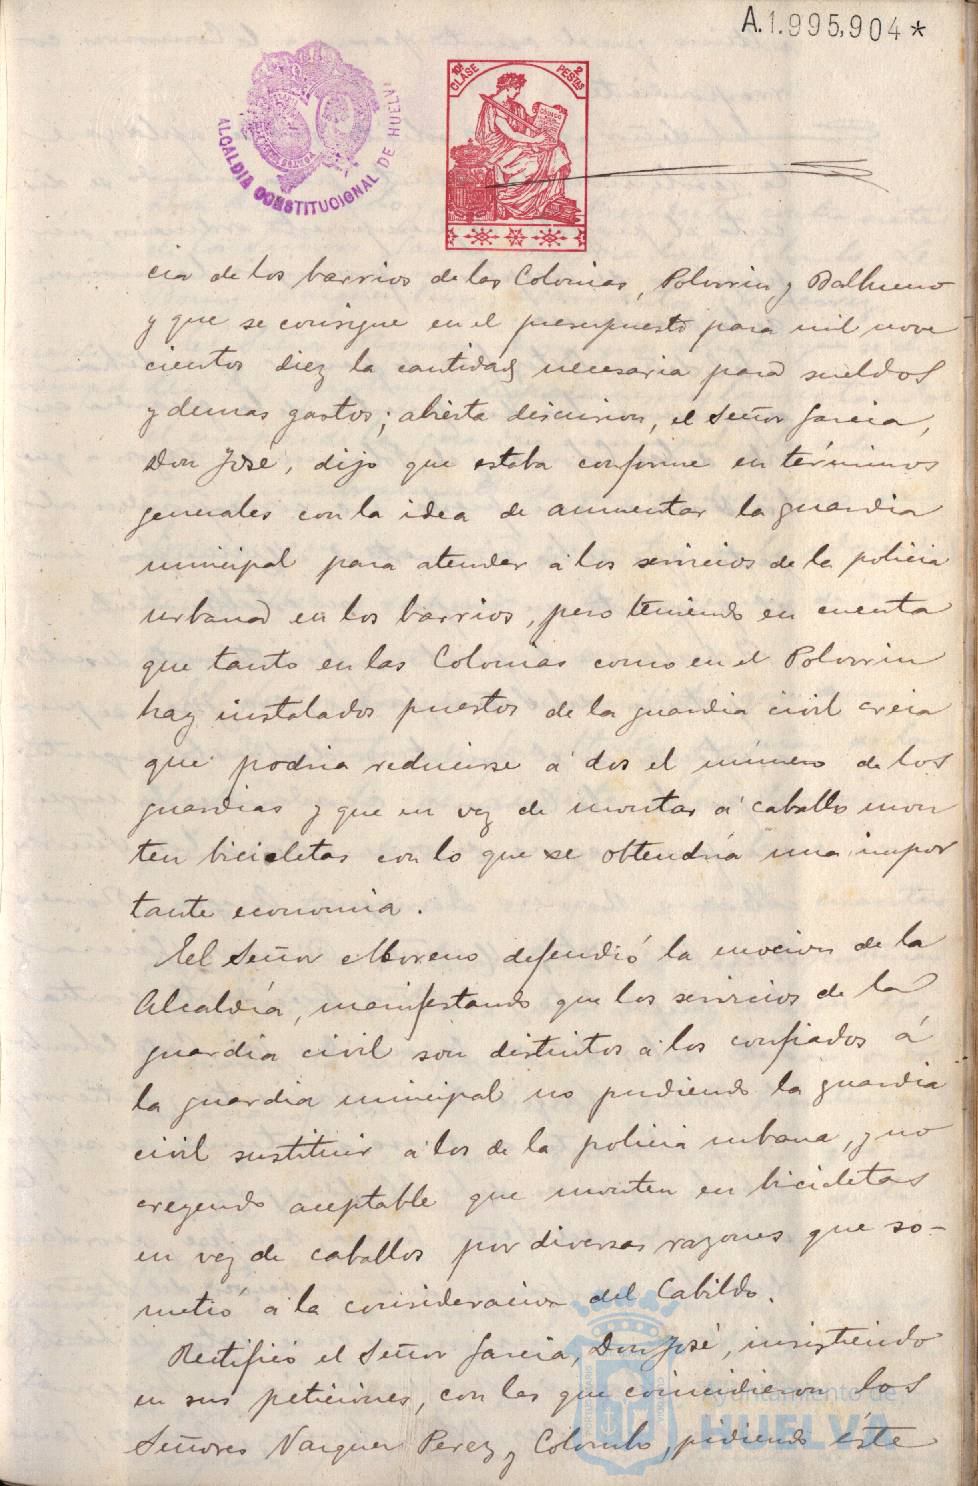 A.1.995,904*
ALCALDIA CONSTITUCIONAL DE HUELV
10ª CLASE 2 PESTAS
cia de los barrios de las Colonias, Polvorin y Balbueno
y que se consigne en el presupuesto para mil nove
cientos diez la cantidad necesaria para sueldos
y demas gastos; abierta discusion, el Señor Garcia,
Don José, dijo que estaba conforme en términos
generales con la idea de aumentar la guardia
municipal para atender á los servicios de la policia
urbana en los barrios, pero teniendo en cuenta
que tanto en las Colonias como en el Polvorin
hay instalados puestos de la guardia civil creia
que podria reducirse á dos el número de los
guardias y que en vez de montar á caballo mon
ten bicicletas con lo que se obtendria una impor
tante economia.
El Señor Moreno defendió la mocion de la
Alcaldía, manifestando que los servicios de la
guardia civil son distintos á los confiados á
la guardia municipal no pudiendo la guardia
civil sustituir á los de la policia urbana, y no
creyendo aceptable que monten en bicicletas
en vez de caballos por diversas razones que so-
metió á la consideracion del Cabildo.
Rectificó el Señor Garcia, Don José, insistiendo
en sus peticiones, con las que coincidieron los
Señores Vazquez Perez y Colombo, pidiendo éste
Ayuntamiento de
HUELVA